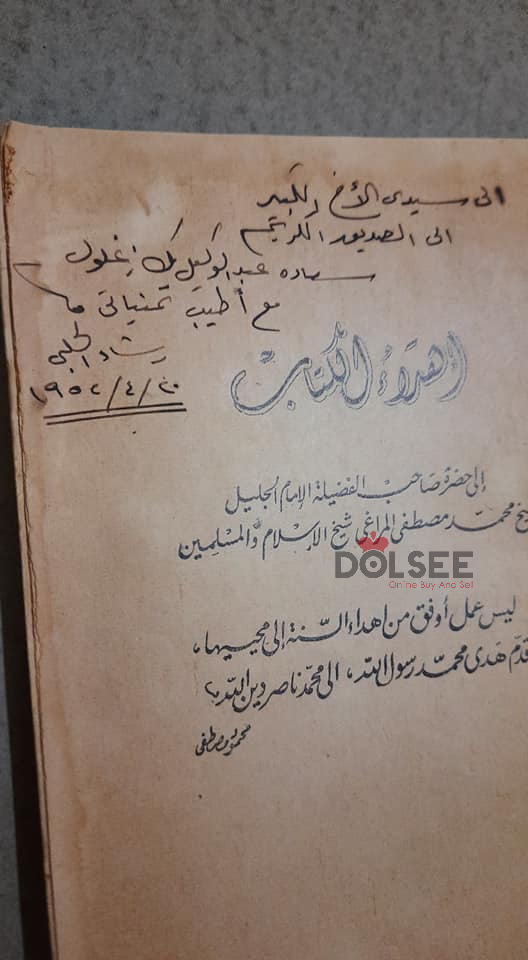 الى سيدى الأخ الكبير
الى الصديق الكريم
سعاده عبد الوكيل بك زغلول
مع أطيب تمنياتى
رشاد الحلبى
١٩٥٢/٤/٢٠
إهداء الكتاب
إلى حضرة صاحب الفضيلة الإمام الجليل
محمد مصطفى المراغى شيخ الإسلام والمسلمين
DOLSEE
Online Buy And Sell
ليس عمل أوفق من اهداء السنة إلى محييها،
هدى محمد رسول الله، الى محمد ناصر دين الله
محمود مصطفى